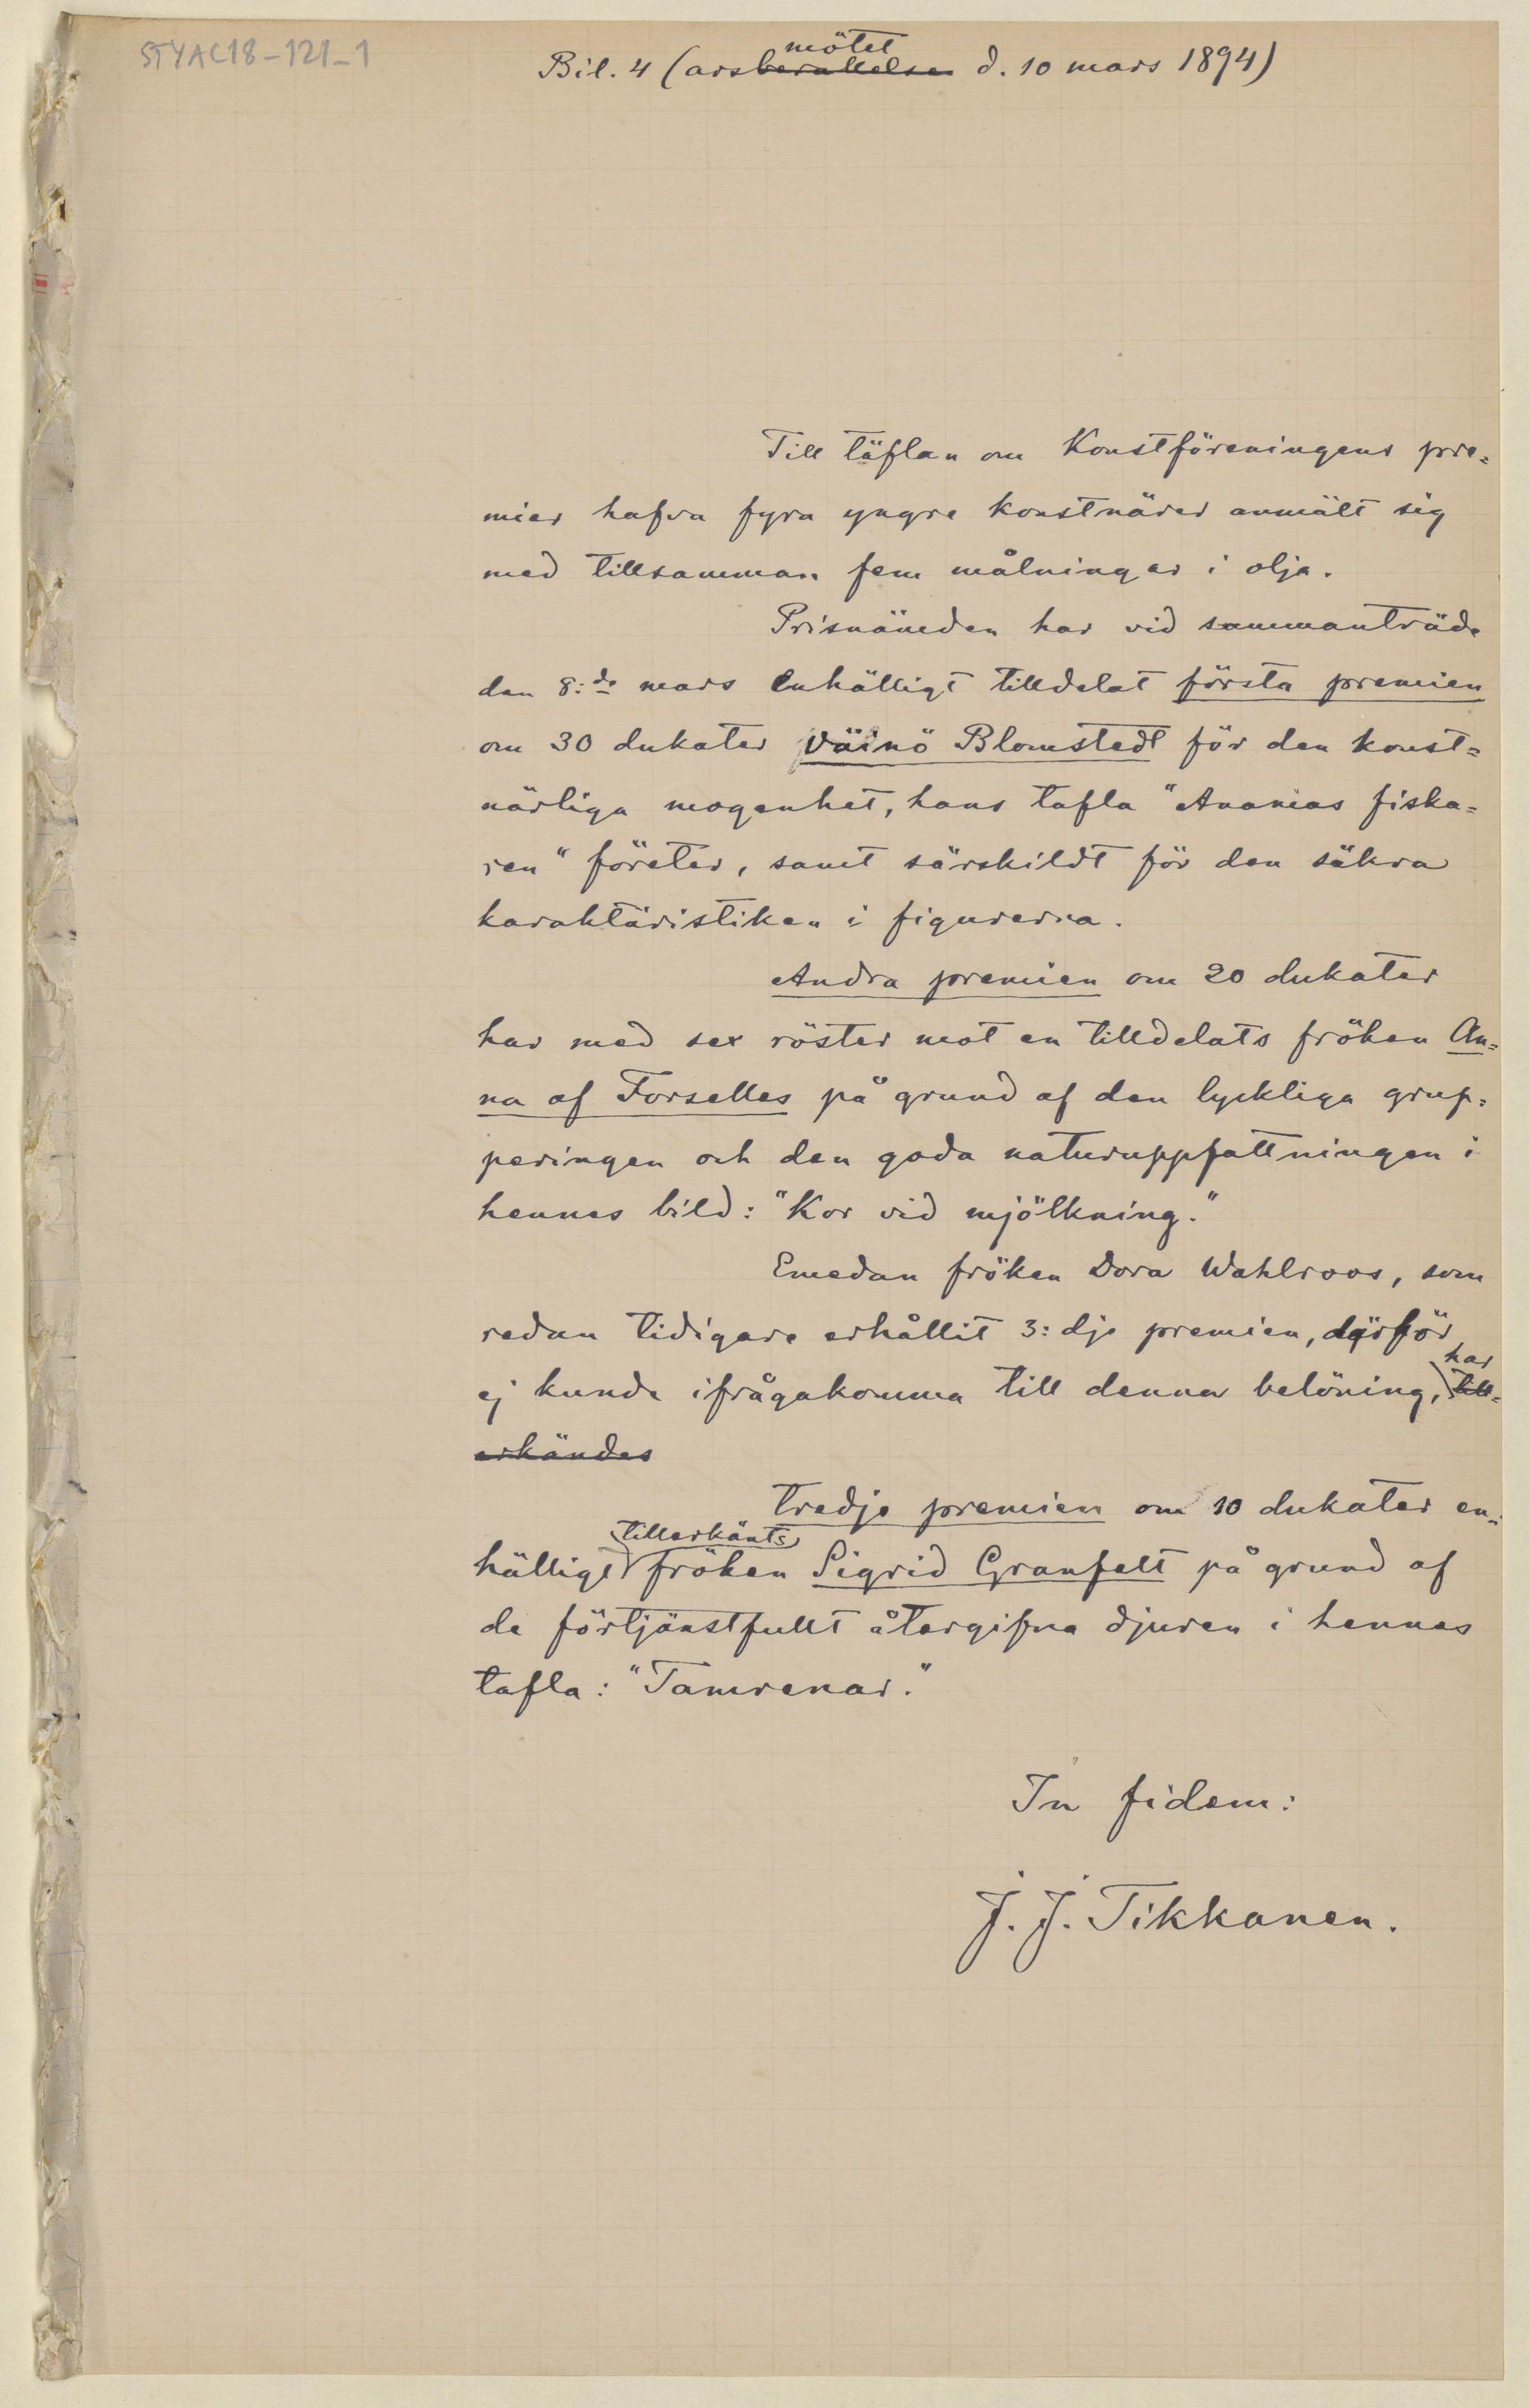 STYAC18-121_1
Bil. 4 (års berättelsen mötet d. 10 mars 1894)
Till täflan om Konstföreningens pre=
mier hafva fyra yngre konstnärer anmält sig
med tillsamman fem målningar i olja.
Prisnämden har vid sammanträde
den 8:de mars enhälligt tilldelat första premien
om 30 dukater Väinö Blomstedt för den konst=
närliga mogenhet, hans tafla "Ananias fiska=
ren" företer, samt särskildt för den säkra
karaktäristiken i figurerna.
Andra premien om 20 dukater
har med sex röster mot en tilldelats fröken An=
na af Forselles på grund af den lyckliga grup=
peringen och den goda naturuppfattningen i
hennes bild: "Kor vid mjölkning."
Emedan fröken Dora Wahlroos, som
redan tidigare erhållit 3:dje premien, därför
ej kunde ifrågakomma till denna belöning, har till=
erkändes
tredje premien om 10 dukater en=
hälligt tillerkänts fröken Sigrid Granfelt på grund af
de förtjänstfullt återgifna djuren i hennes
tafla: "Tamrenar."
In fidem:
J. J. Tikkanen.